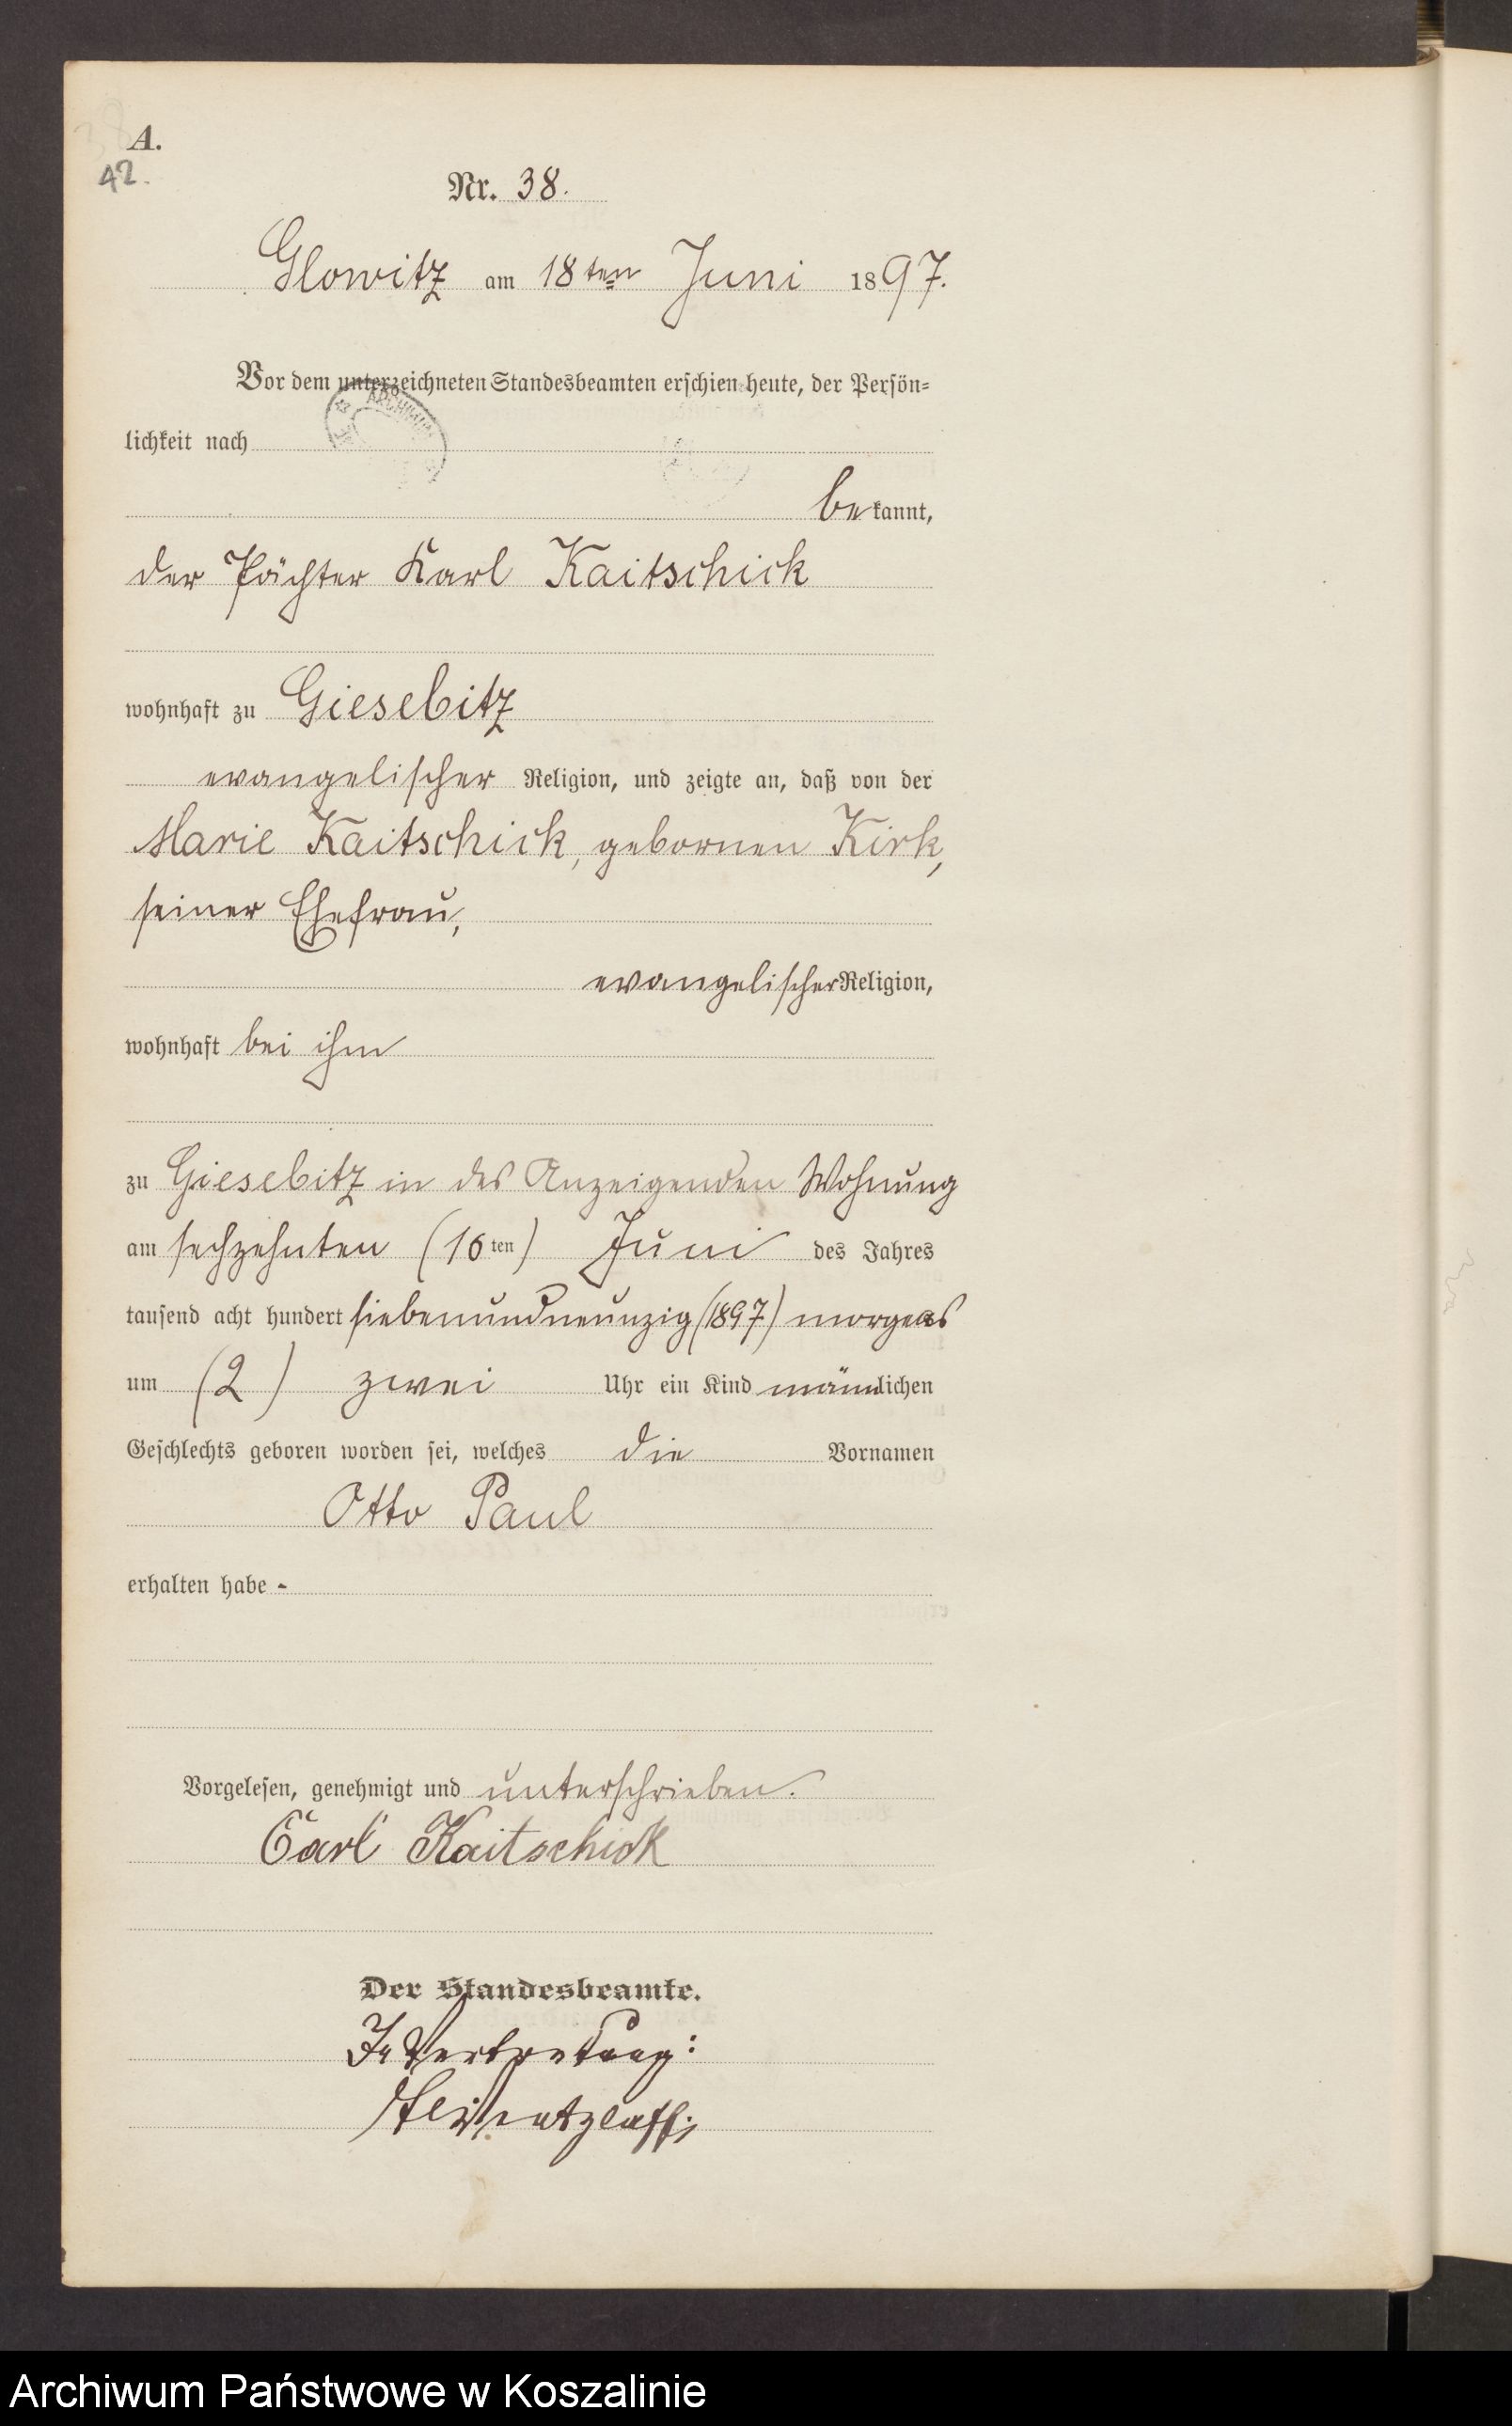 A.
42.
Nr. 38.
Glowitz am 18ten Juni 1897.
Vor dem unterzeichneten Standesbeamten erschien heute, der Persön-
lichkeit nach
bekannt,
der Pächter Karl Kaitschick
wohnhaft zu Giesebitz
evangelischer Religion, und zeigte an, daß von der
Marie Kaitschick, gebornen Kirk,
seiner Ehefrau,
evangelischer Religion,
wohnhaft bei ihm
zu Giesebitz in des Anzeigenden Wohnung
am sechzehnten (16ten) Juni des Jahres
tausend acht hundert siebenundneunzig (1897) morgens
um (2) zwei Uhr ein Kind männlichen
Geschlechts geboren worden sei, welches die Vornamen
Otto Paul
erhalten habe -
Vorgelesen, genehmigt und unterschrieben.
Carl Kaitschick
Der Standesbeamte.
In Vertretung:
Archiwum Państwowe w Koszalinie